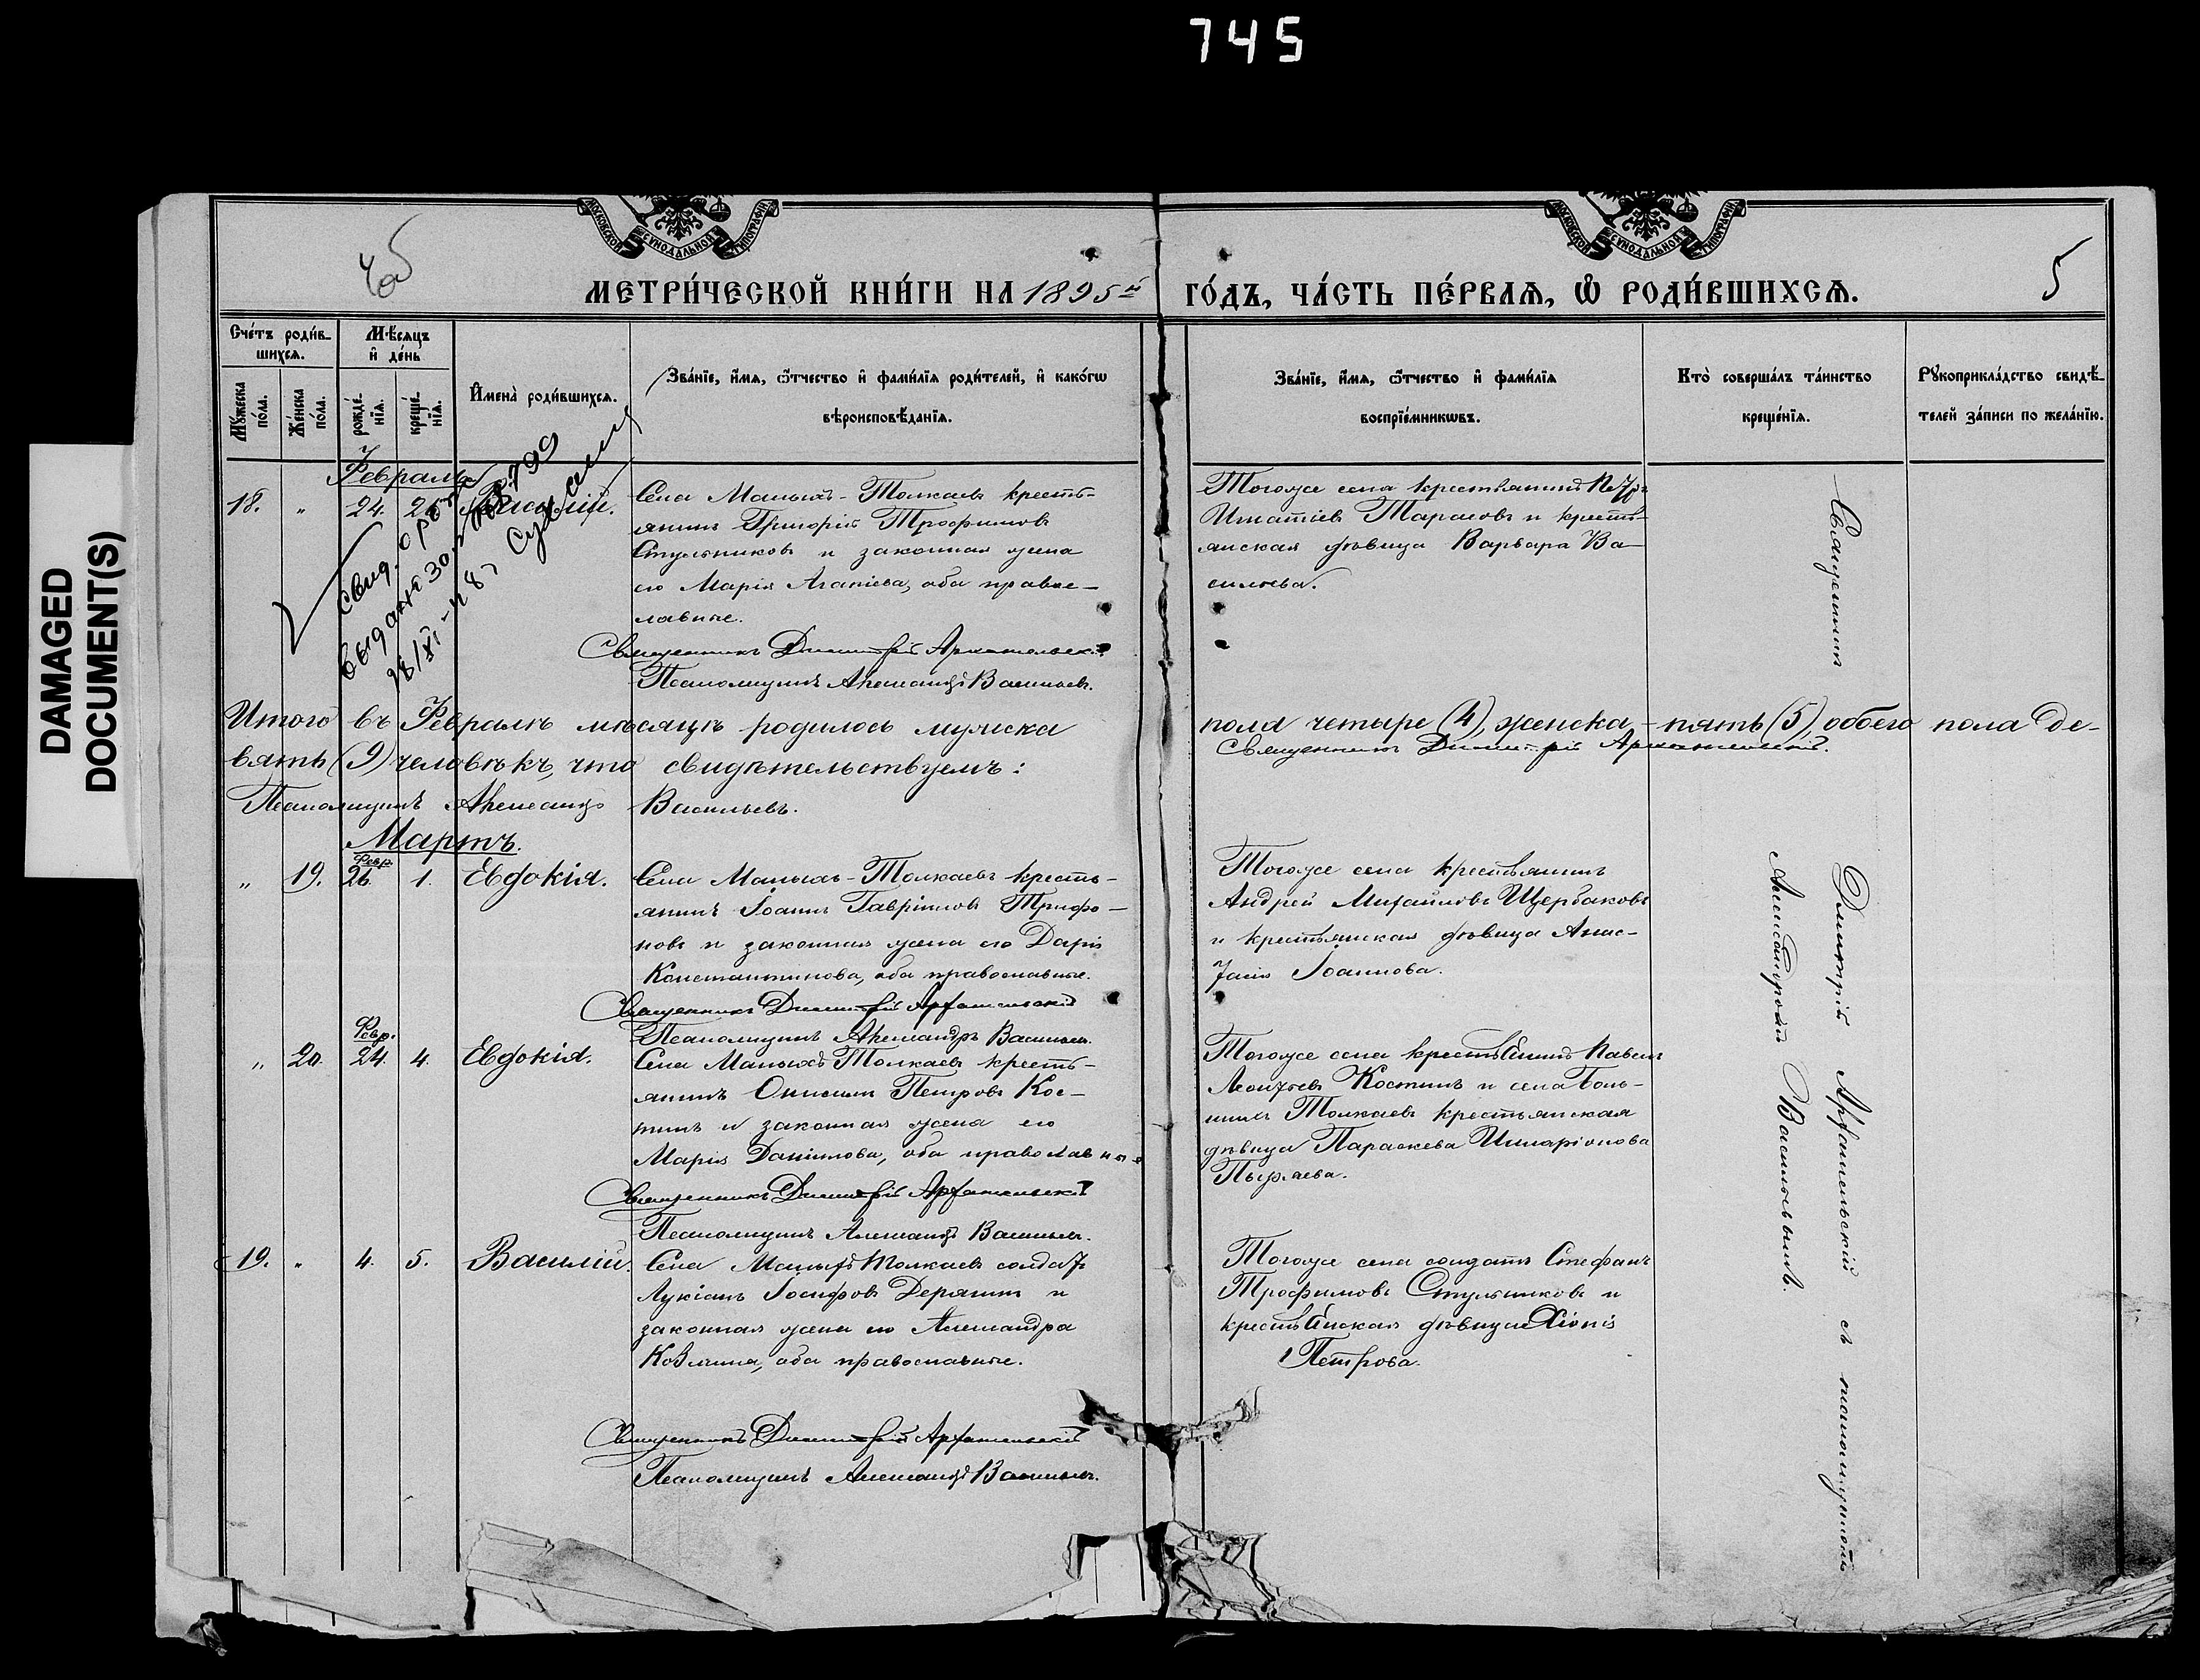 745
DAMAGED
DOCUMENT(S)
МОСКОВСКОЙ СУНОДАЛЬНОЙ ТИПОГРАФІИ
МОСКОВСКОЙ СУНОДАЛЬНОЙ ТИПОГРАФІИ
5
МЕТРИ́ЧЕСКОЙ КНИ́ГИ НА 1895й ГО́ДЪ, ЧА́СТЬ ПЕ́РВАѦ, Ѡ҆ РОДИ́ВШИХСѦ.
Сче́тъ роди́в-
шихсѧ.
Мꙋ́жеска по́ла.
Же́нска по́ла.
Мѣ́сѧцъ
и҆ де́нь
рожде́нїѧ.
креще́нїѧ.
И҆мена̀ роди́вшихсѧ.
Зва́нїе, и҆́мѧ, ѻ҆́тчество и҆ фами́лїѧ роди́телей, и҆ како́гѡ
вѣроисповѣ́данїѧ.
Зва́нїе, и҆́мѧ, ѻ҆́тчество и҆ фами́лїѧ
воспрїе́мникѡвъ.
Кто̀ соверша́лъ та́инство
креще́нїѧ.
Рꙋкоприкла́дство свидѣ́-
телей за́писи по жела́нїю.
Февраль
18. " 24. 26. Василій.
Села Малыхъ-Толкаевъ кресть-
янинъ Григорій Трофимовъ
Стульниковъ и законная жена
его Марія Агапіева, оба право-
славные.
Священникъ Димитрій Архангельскій
Псаломщикъ Александръ Васильевъ.
Тогоже села крестьянинъ Петръ
Игнатіевъ Тарасовъ и кресть-
янская дѣвица Варвара Ва-
сильева.
Итого въ Февралѣ мѣсяцѣ родилось мужска пола четыре (4), женска - пять (5), обоего пола де-
вять (9) человѣкъ, что свидѣтельствуемъ: Священникъ Димитрій Архангельскій.
Псаломщикъ Александръ Васильевъ.
Мартъ.
" 19. Февр. 26. 1. Евдокія.
Села Малыхъ-Толкаевъ кресть-
янинъ Іоаннъ Гавріиловъ Трифо-
новъ и законная жена его Дарія
Константинова, оба православные.
Священникъ Димитрій Архангельскій
Псаломщикъ Александръ Васильевъ.
Тогоже села крестьянинъ
Андрей Михайловъ Щербаковъ
и крестьянская дѣвица Анас-
тасія Іоаннова.
" 20. Февр. 24. 4. Евдокія.
Села Малыхъ Толкаевъ кресть-
янинъ Онисимъ Петровъ Кос-
тинъ и законная жена его
Марія Даніилова, оба православные
Священникъ Димитрій Архангельскій
Псаломщикъ Александръ Васильевъ.
Тогоже села крестьянинъ Павелъ
Леонтьевъ Костинъ и села Боль-
шихъ Толкаевъ крестьянская
дѣвица Параскева Иларіонова
Пыряева.
19. " 4. 5. Василій.
Села Малыхъ Толкаевъ солдатъ
Лукіанъ Іосифовъ Дерягинъ и
законная жена его Александра
Козьмина, оба православные.
Священникъ Димитрій Архангельскій
Псаломщикъ Александръ Васильевъ.
Тогоже села солдатъ Стефанъ
Трофимовъ Стульниковъ и
крестьянская дѣвица Хіонія
Петрова.
Священникъ Димитрій Архангельскій съ псаломщикомъ
Александромъ Васильевымъ.